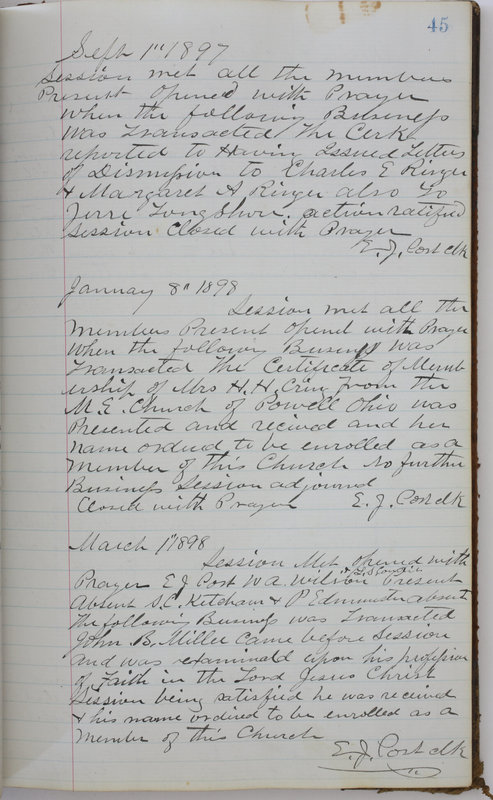 45
Sept 1" 1897
Session met all the members
Present opened with Prayer
when the following Business
was transacted The Clerk
reported to Having Issued Letters
of Dismission to Charles E Ringer
& Margaret A Ringer also to
Jerre Longshore. action ratified
Session Closed with Prayer
E. J. Cost clk
January 8" 1898
Session met all the
members Present opend with Prayer
when the following Business was
transacted The Certificate of Memb
ership of Mrs H. H. from the
M. E. Church of Powell Ohio was
Presented and recived and her
name ordred to be enrolled as a
Member of this Church No further
Business Session adjourned
Closed with Prayer E. J. Cost clk
March 1" 1898
Session Met opened with
Prayer E J Cost W A. Wilson Present
Absent S. C. Ketcham & P Edminster absent
The following Business was Transacted
John B. Miller Came before Session
and was examined upon his profession
of Faith in the Lord Jesus Christ
Session being satisfied he was received
& his name ordired to be enrolled as a
Member of this Church
E. J. Cost clk